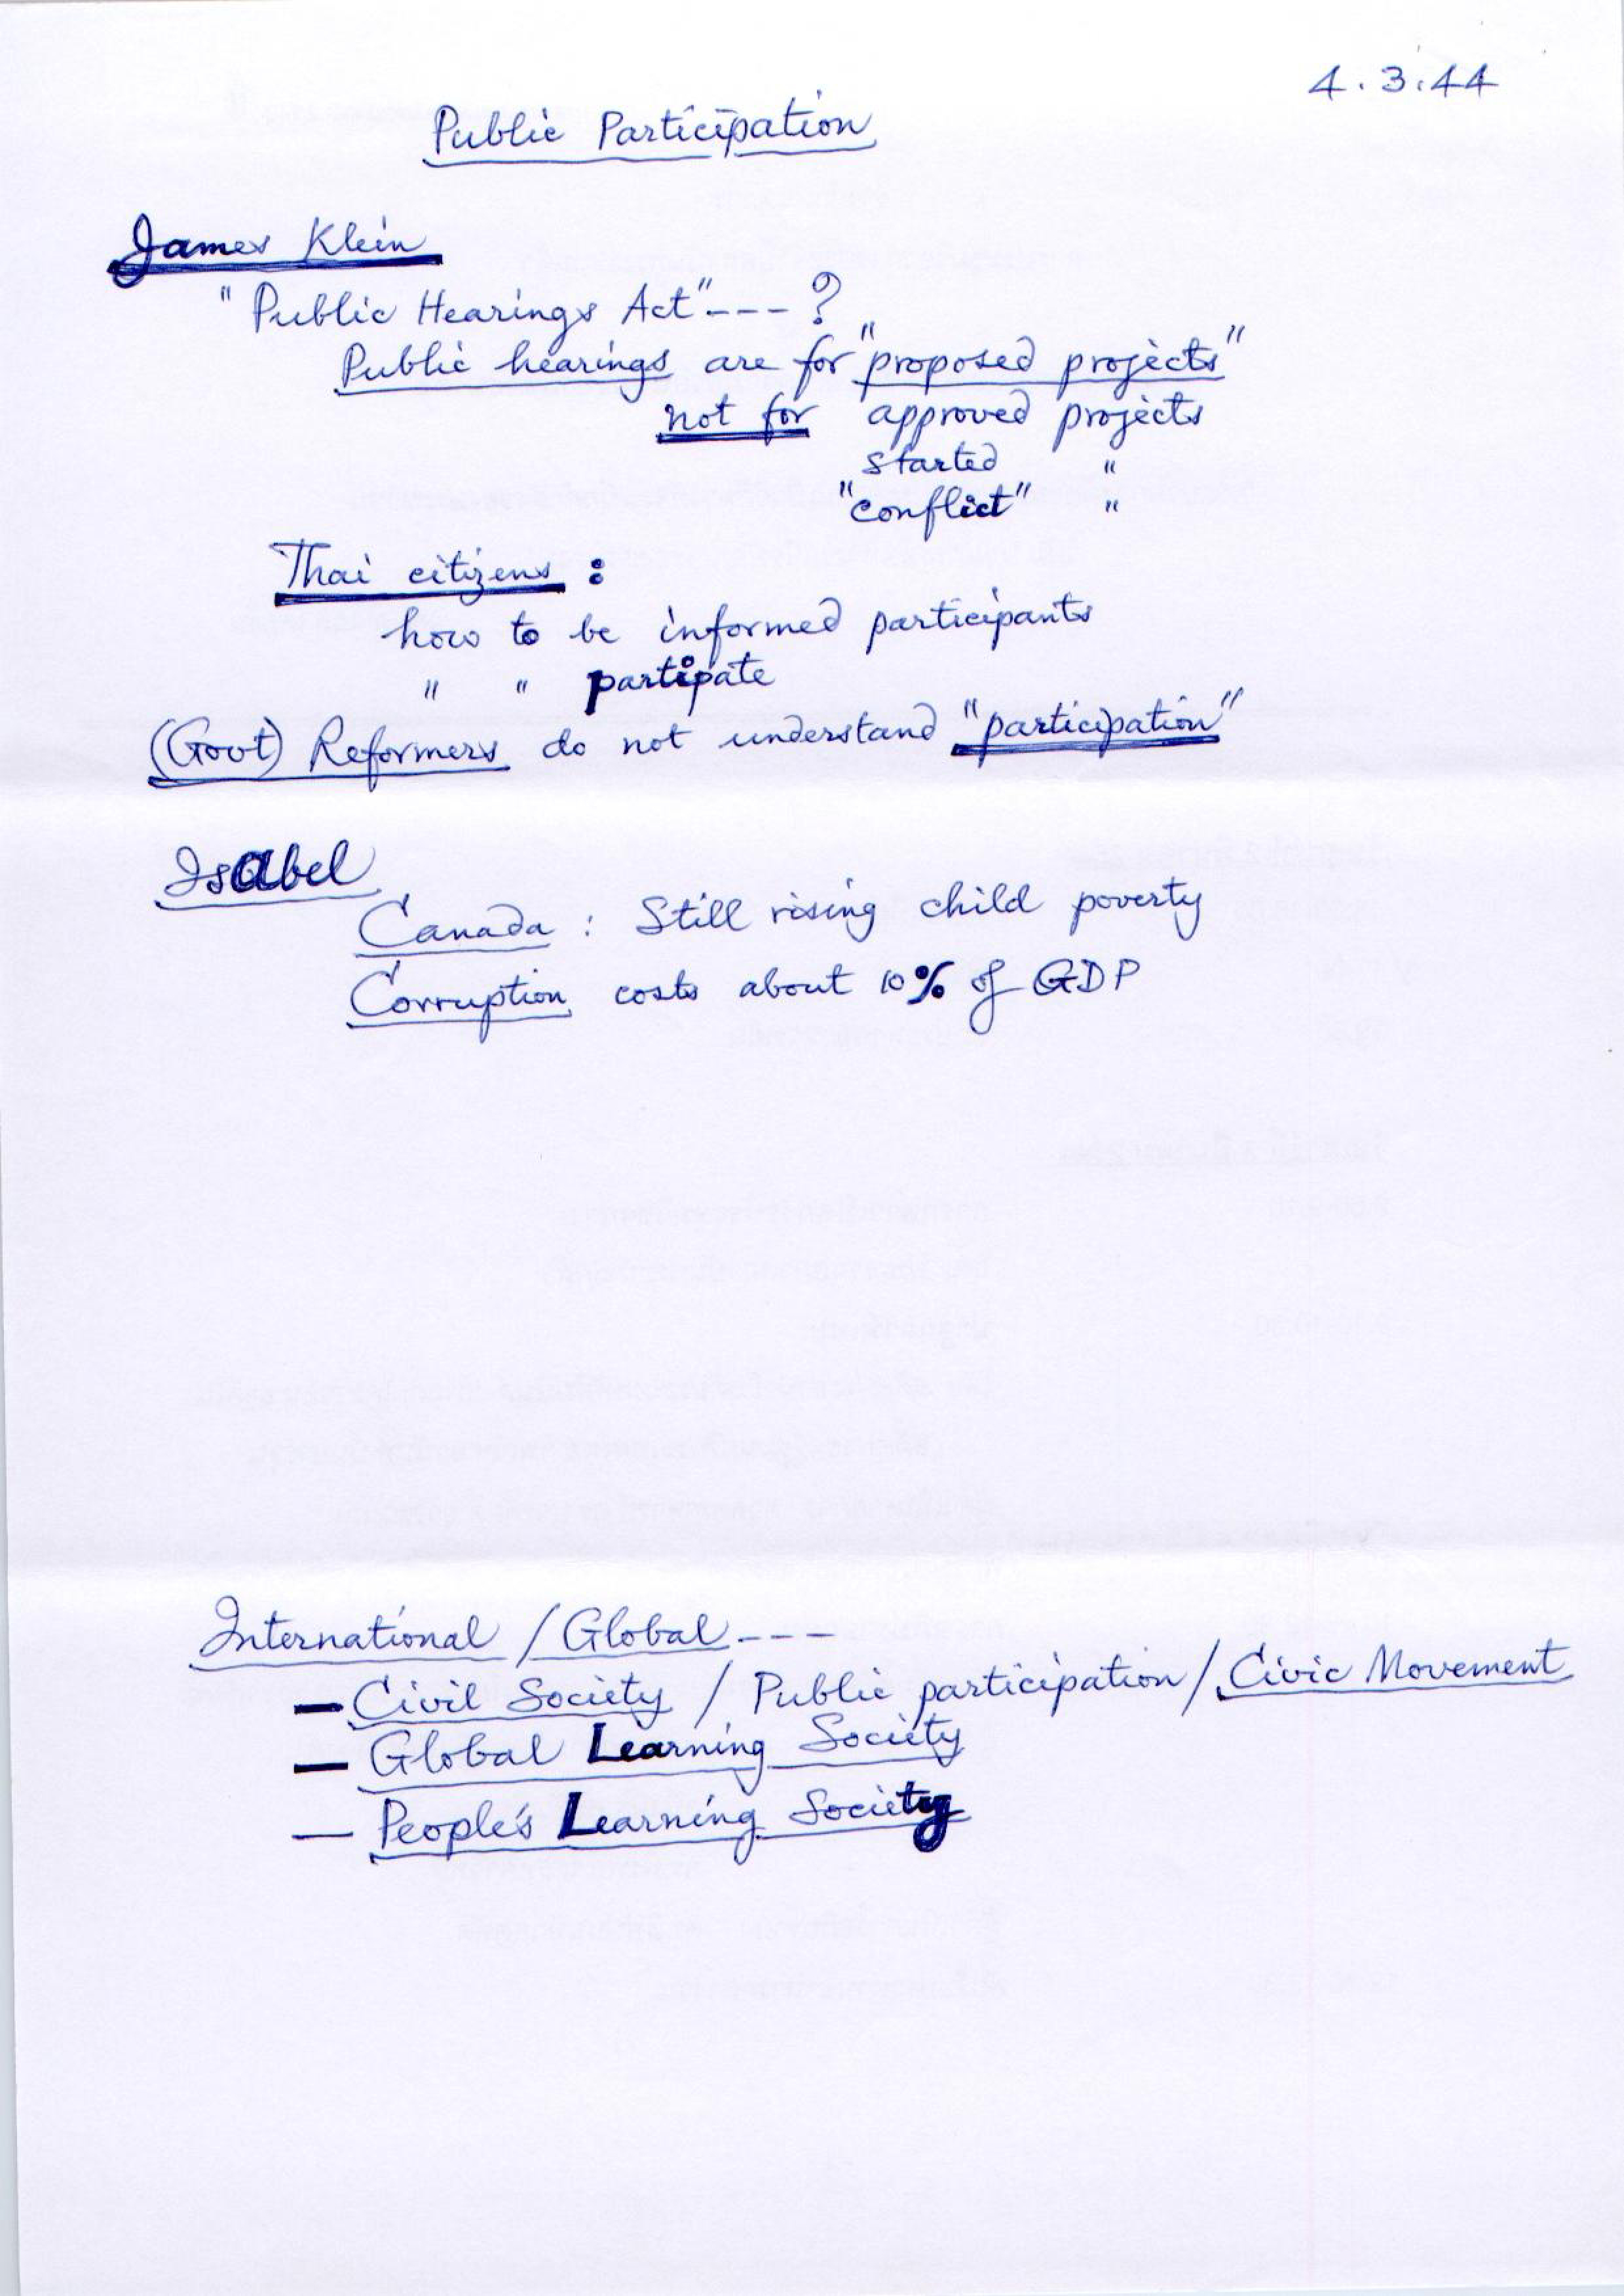 4.3.44
Public Participation
James Klein
"Public Hearings Act"---?
Public hearings are for "proposed projects"
not for approved projects
started "
"conflict" "
Thai citizens :
how to be informed participants
" " partipate
(Govt) Reformers do not understand "participation"
Isabel
Canada : Still rising child poverty
Corruption costs about 10% of GDP
International / Global ----
— Civil Society / Public participation / Civic Movement
— Global Learning Society
— People's Learning Society